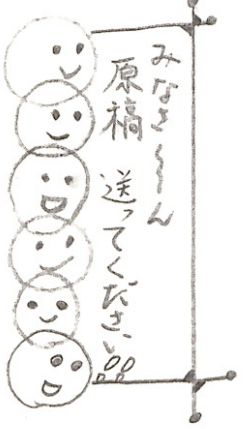 みなさ〜ん
原稿 送ってください!!